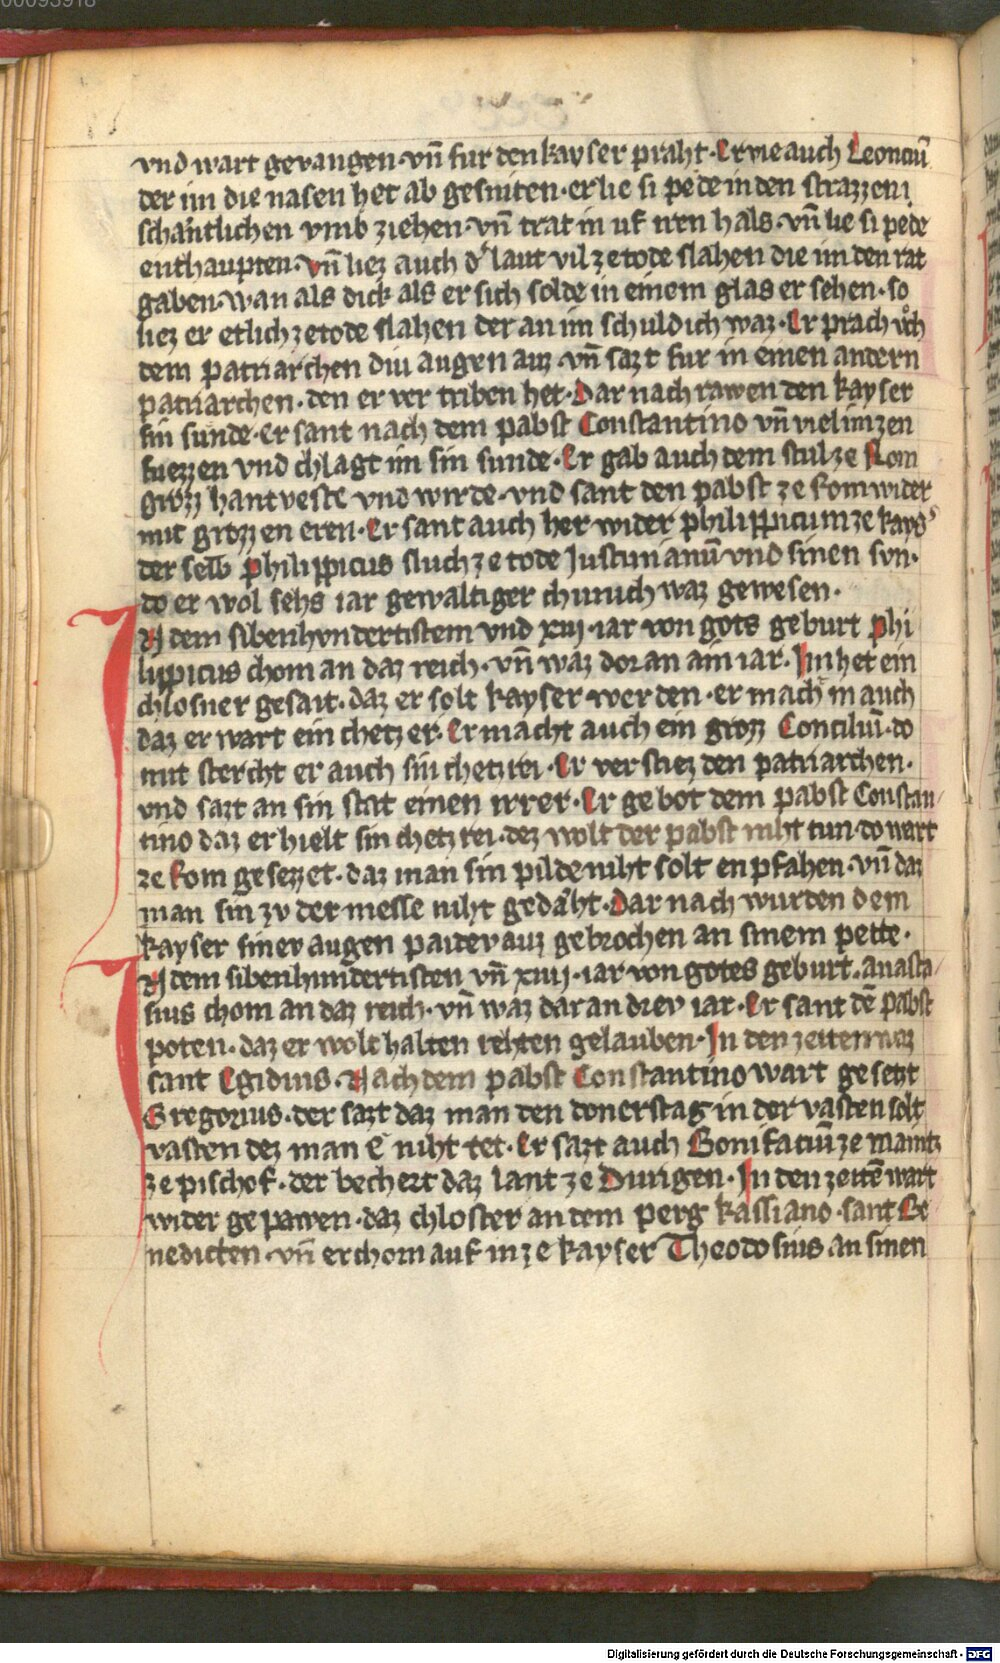 00093918
vnd wart gevangen · vñ fur den kayser praht · Er vie auch Leonciū
der im die nasen het ab gesniten · er lie si pede in den strazzen
schantlichen vmb ziehen · vñ trat in uf iren hals · vñ lie si pede
enthaupten · vñ liez auch d laut vil ze tode slahen die im den rat
gaben · wan als dick als er sich solde in einem glas er sehen · so
liez er etlich ze tode slahen der an im schuldich waz · Er prach
dem patriarchen diu augen auz · vñ sazt fur in einen andern
patriarchen · den er ver triben het · Dar nach rawen den kayser
sin sunde · er sant nach dem pabst Constantino vñ viel im zen
fuezzen vnd chlagt im sin sunde · Er gab auch dem stul ze Rom
grozz hantveste vnd wirde · vnd sant den pabst ze Rom wider
mit grozzen eren · Er sant auch her wider philippicum ze kayds
der selb philippicus sluch ze tode Justinianū vnd sinen svn ·
do er wol sehs iar gewaltiger chunich waz gewesen ·
IN dem sibenhvndertistem vnd xiij · iar von gots geburt phi
lippicus chom an daz reich · vñ waz dor an ain iar · Im het ein
chlosner gesait · daz er solt kayser werden · er mach in auch
daz er wart ein chetzer · Er macht auch ein grozz Conciliū · do
mit stercht er auch sin chetzrei · Er verstiez den patriarchen ·
vnd sazt an sin stat einen irrer · Er gebot dem pabst Constan
tino daz er hielt sin chetzrei · dez wolt der pabst niht tun · do wart
ze Rom gesezzet · daz man sin pilde niht solt enpfahen · vñ daz
man sin zv der messe niht gedæht · Dar nach wurden dem
kayser sinev augen paidev auz gebrochen an sinem pette ·
IN dem sibenhundertisten vñ xiiij · iar von gotes geburt · anasta
sius chom an daz reich · vñ waz dar an driev iar · Er sant dē pabst
poten · daz er wolt halten rehten gelauben · In den zeiten waz
sant Egidius · Nach dem pabst Constantino wart gesetzt
Gregorius · der sazt daz man den donerstag in der vasten solt
vasten dez man e niht tet · Er sazt auch Bonifaciū ze maintz
ze pischof · der bechert daz lant ze Duringen · In den zeitē wart
wider gepawen · daz chloster an dem perg kassiano · sant Be
nedicten · vñ er chom auf in ze kayser Theodosius an sinen
Digitalisierung gefördert durch die Deutsche Forschungsgemeinschaft - DFG